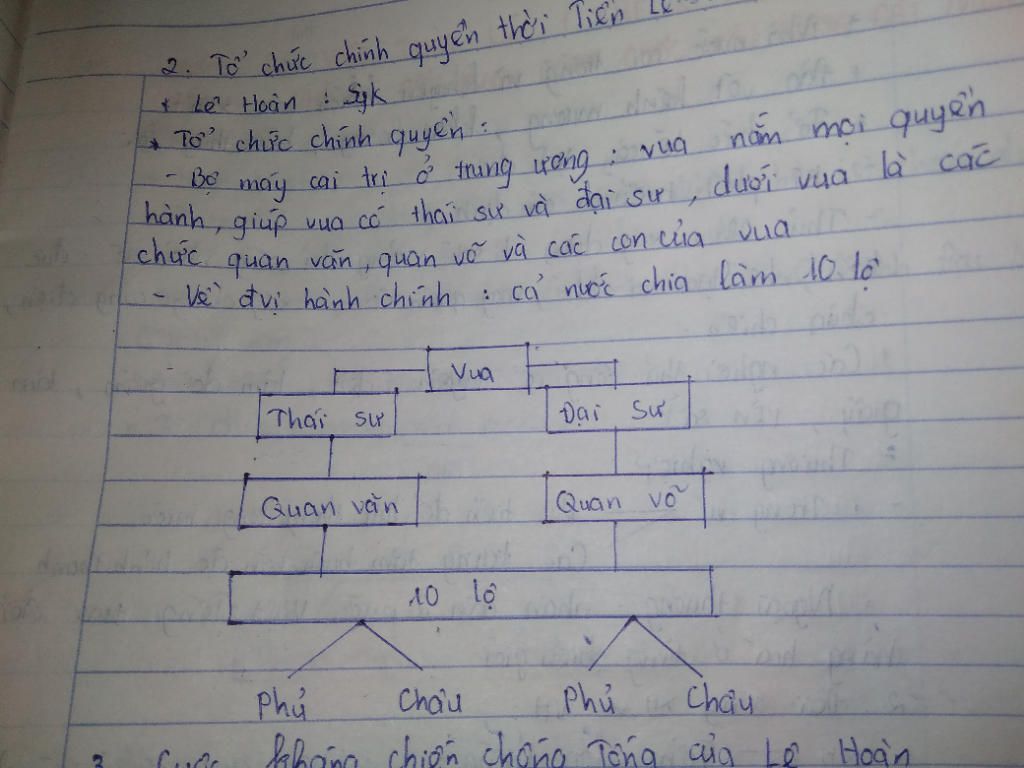 2. Tổ chức chính quyền thời Tiền Lê
* Lê Hoàn : Sgk
* Tổ chức chính quyền :
- Bộ máy cai trị ở trung ương : vua nắm mọi quyền
hành, giúp vua có thái sư và đại sư, dưới vua là các
chức quan văn, quan võ và các con của vua
- Về đvị hành chính : cả nước chia làm 10 lộ
Vua
Thái sư Đại sư
Quan văn Quan võ
10 lộ
Phủ Châu Phủ Châu
3. Cuộc kháng chiến chống Tống của Lê Hoàn